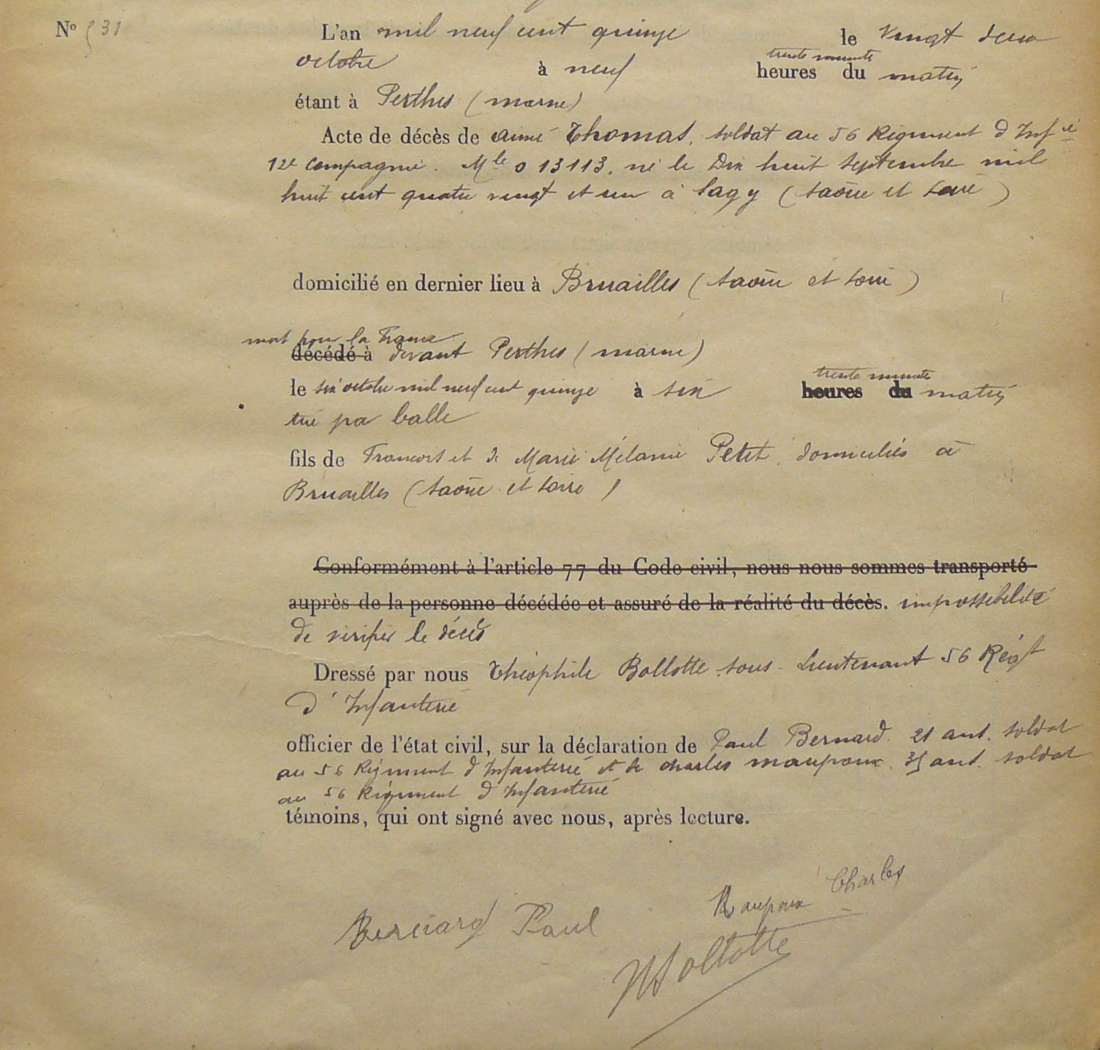 N° 531
L'an mil neuf cent quinze le vingt deux
octobre à neuf heures trente minutes du matin
étant à Perthes (marne)
Acte de décès de aimé Thomas, soldat au 56 Régiment d'Infie
12e compagnie. Mle 013113, né le Dix huit septembre mil
huit cent quatre vingt et un à Sagy (Saône et Loire)
domicilié en dernier lieu à Bruailles (Saône et Loire)
mort pour la France
décédé à devant Perthes (marne)
le six octobre mil neuf cent quinze à six heures trente minutes du matin
tué par balle
fils de Francois et de Marie Mélanie Petit, domiciliés à
Bruailles (Saône et Loire)
Conformément à l'article 77 du Code civil, nous nous sommes transporté
auprès de la personne décédée et assuré de la réalité du décès. impossibilité
de vérifier le décès
Dressé par nous Théophile Bollotte, sous-Lieutenant 56 Régt
d'Infanterie
officier de l'état civil, sur la déclaration de Paul Bernard, 21 ans, soldat
au 56 Régiment d'Infanterie et de charles maupoux, 35 ans, soldat
au 56 Régiment d'Infanterie
témoins, qui ont signé avec nous, après lecture.
Maupoux Charles
Bernard Paul